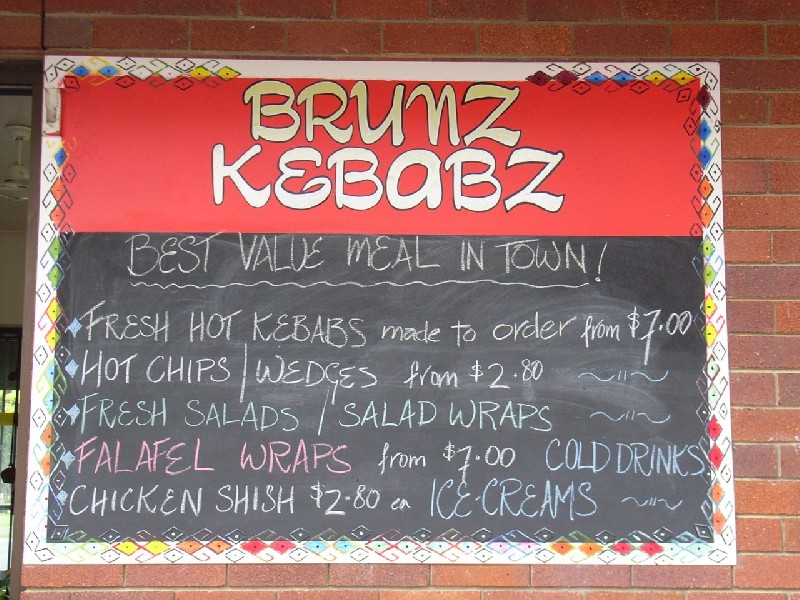 BRUNZ
KEBABZ
BEST VALUE MEAL IN TOWN!
FRESH HOT KEBABS made to order from $7.00
HOT CHIPS / WEDGES from $2.80 ~"~
FRESH SALADS / SALAD WRAPS ~"~
FALAFEL WRAPS from $7.00 COLD DRINKS
CHICKEN SHISH $2.80 ea ICE-CREAMS ~"~